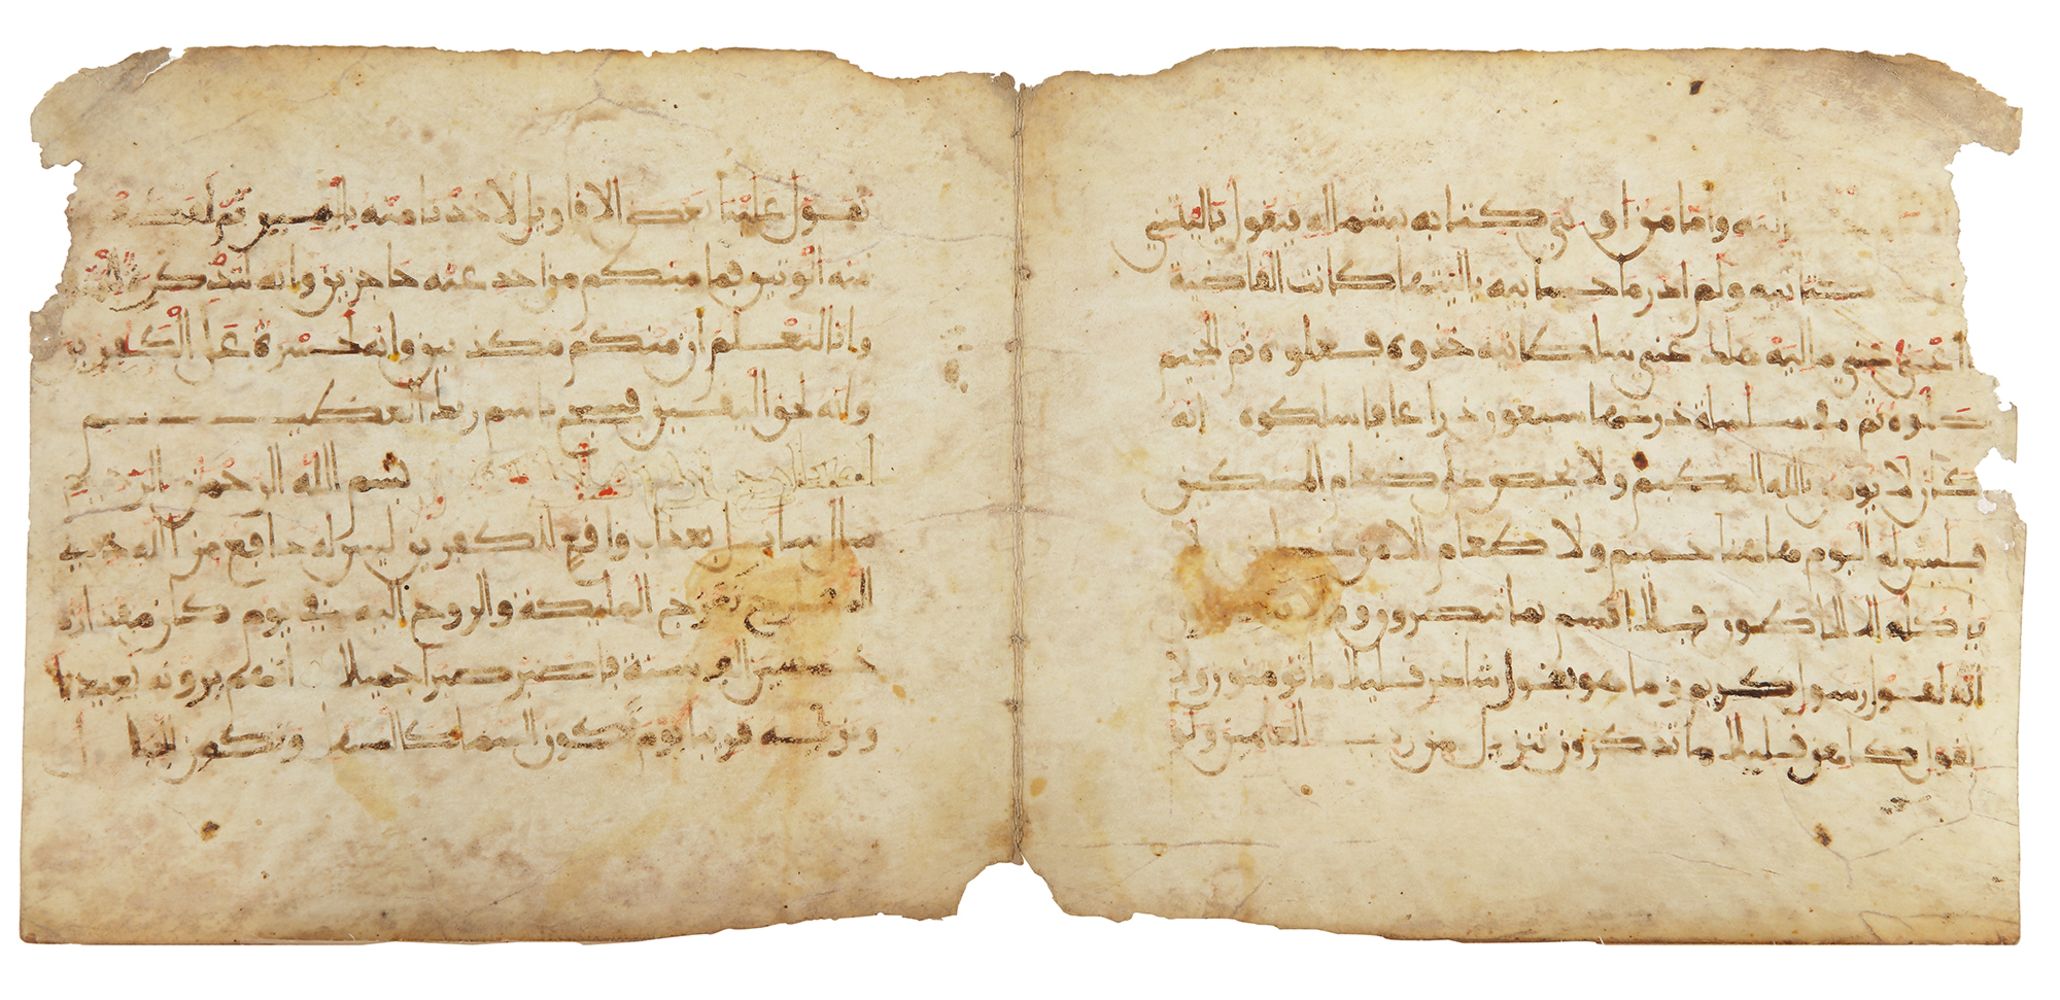 الخالية وأما من أوتي كتابه بشماله فيقول ياليتني
كتابيه ولم أدر ما حسابيه ياليتها كانت القاضية
ما أغنى عني ماليه هلك عني سلطانيه خذوه فغلوه ثم الجحيم
صلوه ثم في سلسلة ذرعها سبعون ذراعا فاسلكوه إنه
كان لا يؤمن بالله العظيم ولا يحض على طعام المسكين
فليس له اليوم هاهنا حميم ولا طعام إلا من غسلين لا
ياكله إلا الخاطئون فلا أقسم بما تبصرون وما لا
إنه لقول رسول كريم وما هو بقول شاعر قليلا ما تومنون ولا
بقول كاهن قليلا ما تذكرون تنزيل من رب العالمين ولو
تقول علينا بعض الأقاويل لأخذنا منه باليمين ثم لقطعنا
منه الوتين فما منكم من أحد عنه حاجزين وإنه لتذكرة للمتقين
وإنا لنعلم أن منكم مكذبين وإنه لحسرة على الكفرين
وإنه لحق اليقين فسبح باسم ربك العظيم
بسم الله الرحمن الرحيم
سال سايل بعذاب واقع للكفرين ليس له دافع من الله ذي
المعارج تعرج المليكة والروح إليه في يوم كان مقداره
خمسين ألف سنة فاصبر صبرا جميلا إنهم يرونه بعيدا
ونريه قريبا يوم تكون السماء كالمهل وتكون الجبا